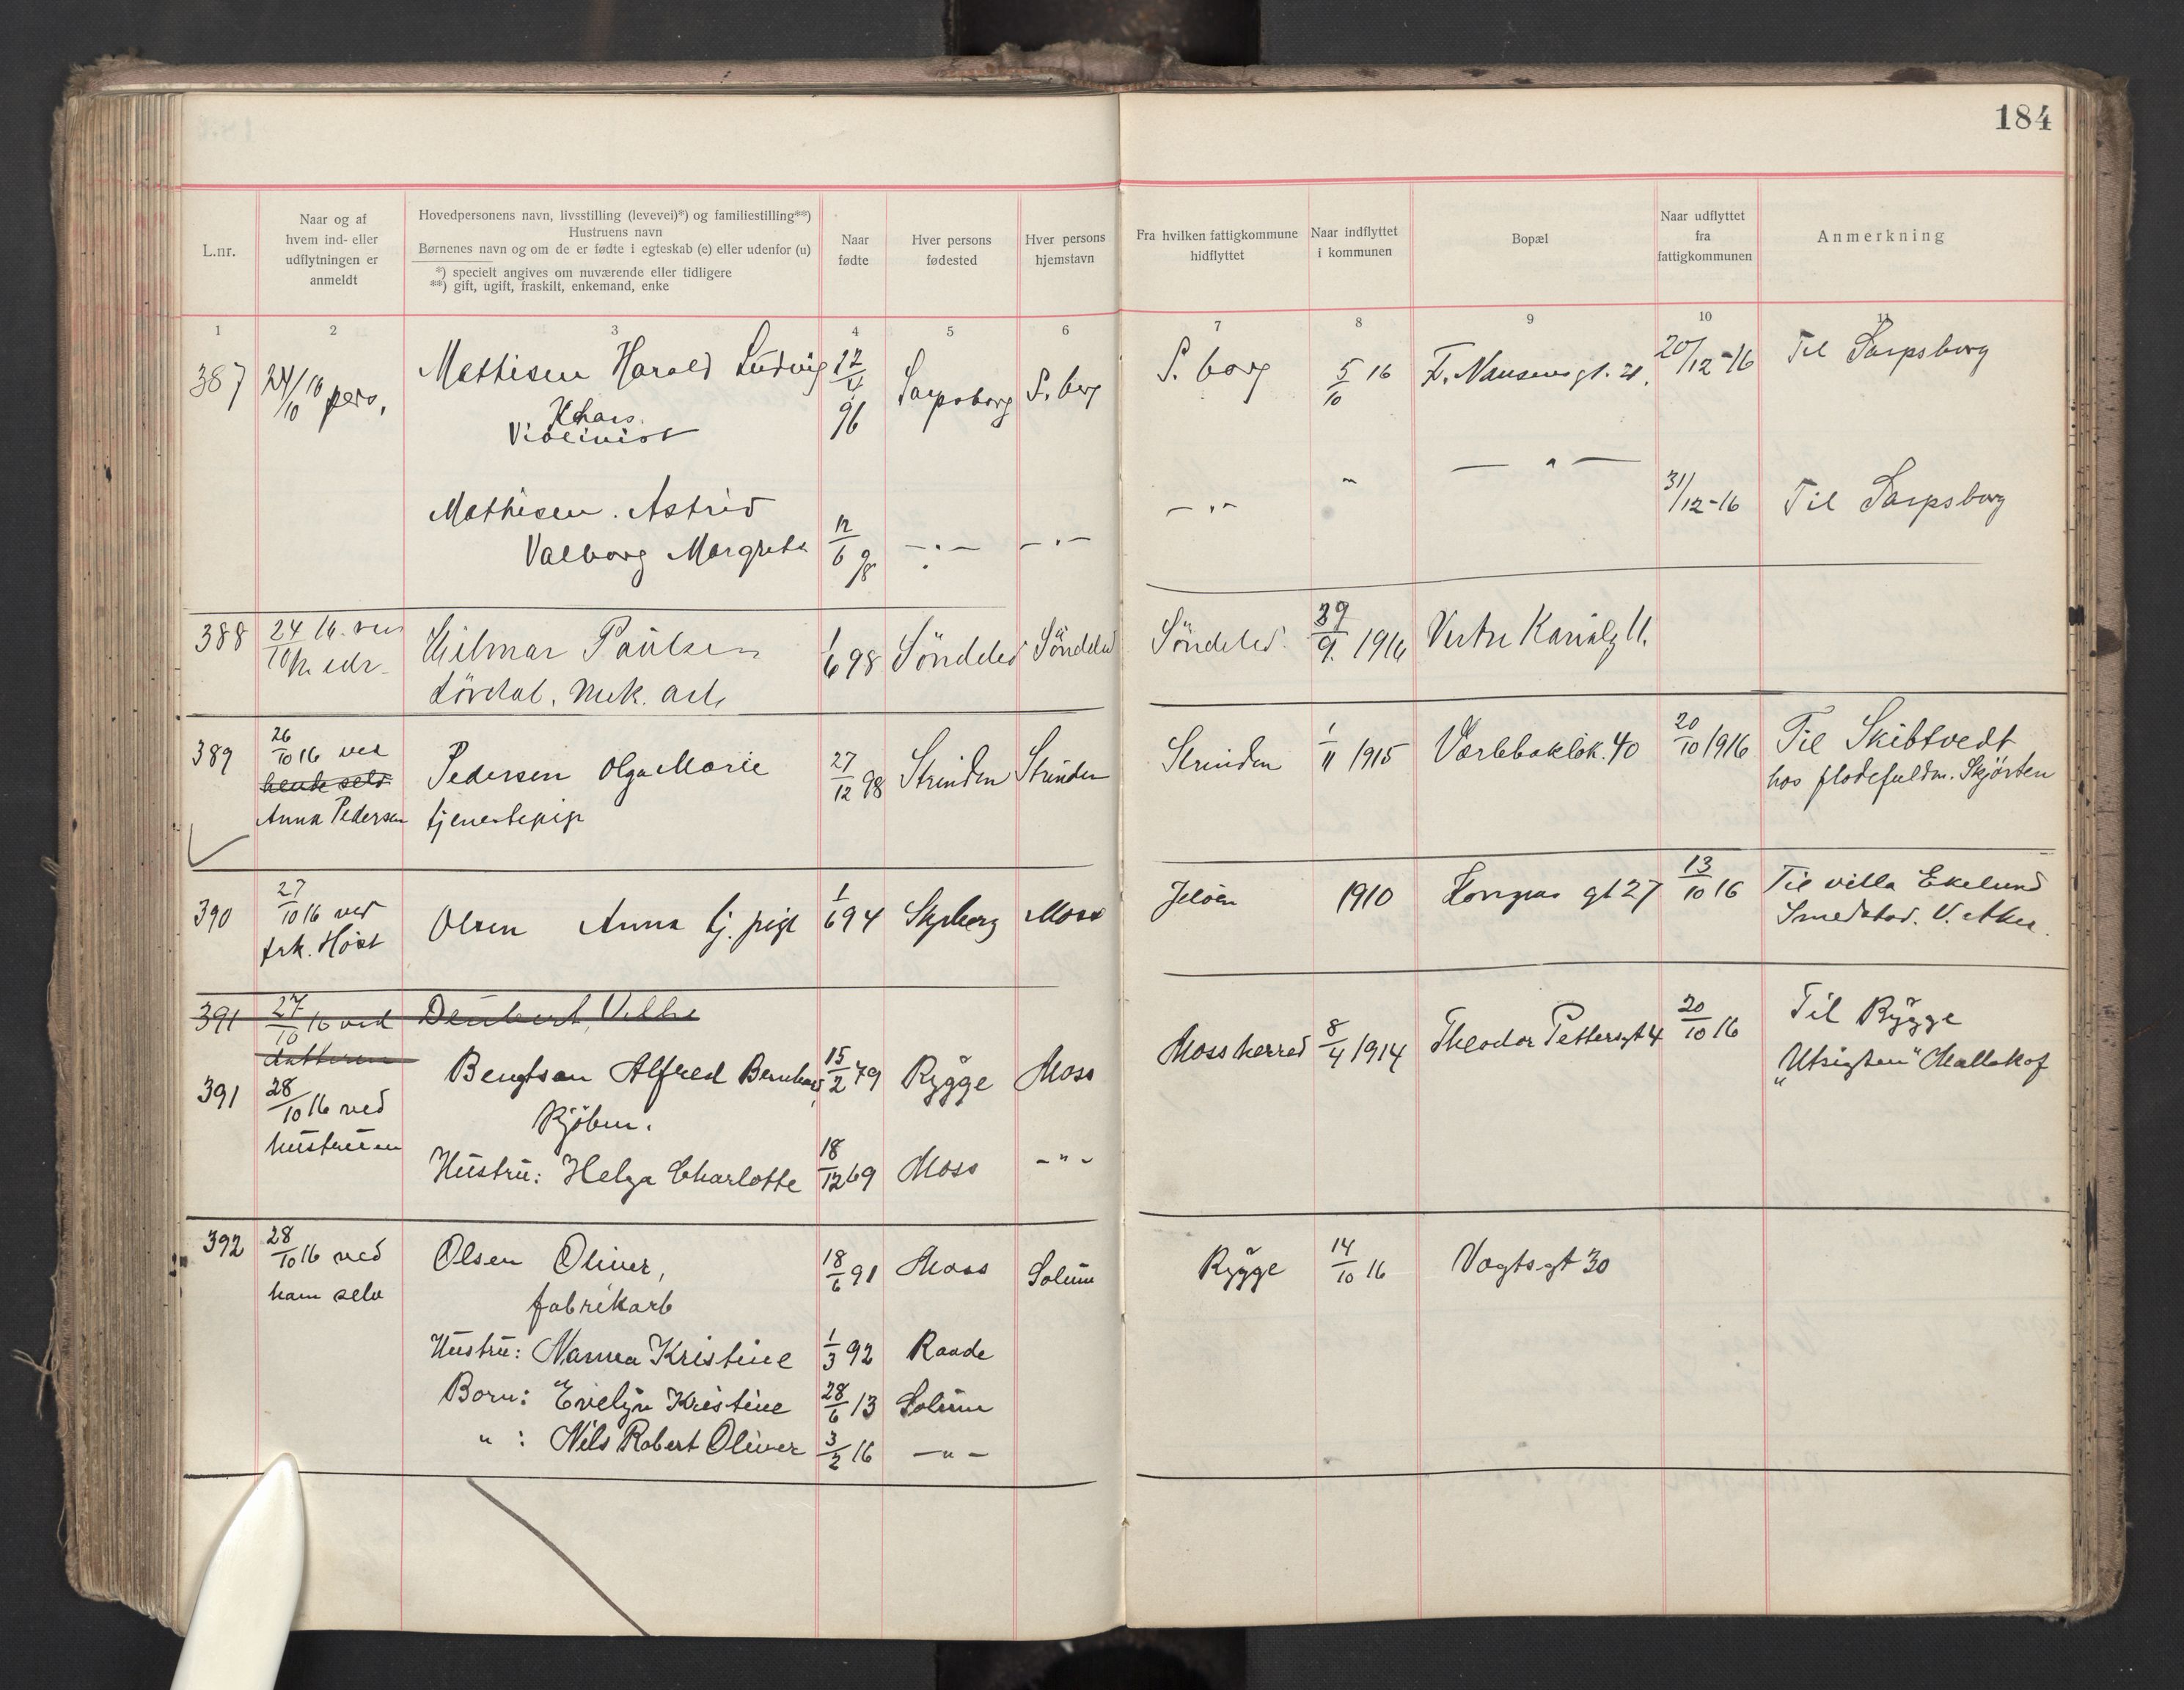 184
L.nr.
Naar og af hvem ind- eller udflytningen er anmeldt
Hovedpersonens navn, livsstilling (levevei)*) og familiestilling**)
Hustruens navn
Børnenes navn og om de er fødte i egteskab (e) eller udenfor (u)
*) specielt angives om nuværende eller tidligere
**) gift, ugift, fraskilt, enkemand, enke
Naar fødte
Hver persons fødested
Hver persons hjemstavn
Fra hvilken fattigkommune hidflyttet
Naar indflyttet i kommunen
Bopæl
Naar udflyttet fra fattigkommunen
Anmerkning
1 2 3 4 5 6 7 8 9 10 11
387 24/10 16 pers. Mathisen Harald Ludvig 96 Sarpsborg S. borg S. borg 5/10 16 F. Nansensgt. 21. 20/12-16 Til Sarpsborg
Violinist
Mathisen. Astrid 31/12-16 Til Sarpsborg
Valborg Margrete 12/6 98 -"- -"- -"- " - " -
388 24/10 16. Hilmar Paulsen 1/6 98 Söndeled Söndeled Söndeled 9. 1916 Vestre Kanalg 11.
Lövdal. mek. arb.
389 26/10 16 ved Pedersen Olga Marie 27/12 98 Strinden Strinden Strinden 1/11 1915 Varlebakløk. 40 20/10 1916 Til Skibtvedt
hende selv hos flødefuldm. Skjörten
Anna Pedersen tjenestepige
390 27/10 16 ved Olsen Anna tj. pige 1/6 94 Skjeberg Moss Jeløen 1910 Kongens gt 27 13/10 16 Til villa Ekelund
frk. Höst Smedstad. V. Aker.
391 27/10 16 ved Deubert, Vilhe
datteren
391 28/10 16 ved Bengtsen Alfred Bernhard 15/2 79 Rygge Moss Moss herred 8/4 1914 Theodor Pettersgt 4 20/10 16 Til Rygge
"Utsigten" Mallakof
hustruen Kjöbm.
Hustru: Helga Charlotte 18/12 69 Moss -"-
392 28/10 16 ved Olsen Oliver, 18/6 91 Moss Solum Rygge 14/10 16 Vogtsgt 30
ham selv fabrikarb
Hustru: Nanna Kristine 1/3 92 Raade
Born: Evelyn Kristine 28/6 13 Solum
" : Nils Robert Oliver 3/2 16 -"-